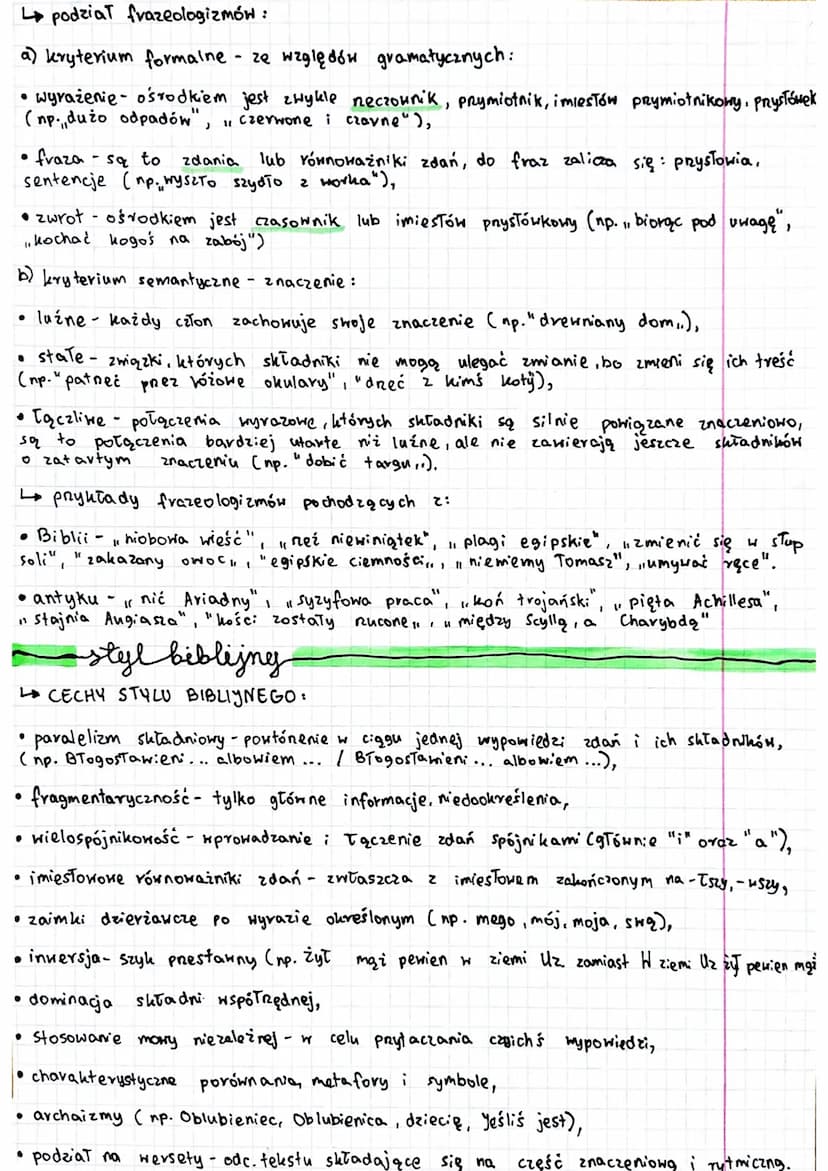 ↳ podział frazeologizmów:
a) kryterium formalne - ze względów gramatycznych:
• wyrażenie - ośrodkiem jest zwykle rzeczownik, przymiotnik, imiesłów przymiotnikowy, przysłówek
(np. „dużo odpadów", „czerwone i czarne"),
• fraza - są to zdania lub równoważniki zdań, do fraz zalicza się: przysłowia,
sentencje (np. „wyszło szydło z worka"),
• zwrot - ośrodkiem jest czasownik lub imiesłów przysłówkowy (np. „biorąc pod uwagę",
„kochać kogoś na zabój")
b) kryterium semantyczne - znaczenie:
• luźne - każdy człon zachowuje swoje znaczenie (np. "drewniany dom„),
• stałe - związki, których składniki nie mogą ulegać zmianie, bo zmieni się ich treść
(np. "patrzeć przez różowe okulary", "drzeć z kimś koty),
• łączliwe - połączenia wyrazowe, których składniki są silnie powiązane znaczeniowo,
są to połączenia bardziej utarte niż luźne, ale nie zawierają jeszcze składników
o zatartym znaczeniu (np. "dobić targu„).
↳ przykłady frazeologizmów pochodzących z:
• Biblii - „hiobowa wieść", „rzeź niewiniątek", „plagi egipskie", „zmienić się w słup
soli", "zakazany owoc„, "egipskie ciemności„, „niewierny Tomasz", „umywać ręce".
• antyku - „nić Ariadny", „syzyfowa praca", „koń trojański", „pięta Achillesa",
„stajnia Augiasza", "kości zostały rzucone„, „między Scyllą, a Charybdą"
styl biblijny
↳ CECHY STYLU BIBLIJNEGO:
• paralelizm składniowy - powtórzenie w ciągu jednej wypowiedzi zdań i ich składników,
(np. Błogosławieni... albowiem ... / Błogosławieni... albowiem ...),
• fragmentaryczność - tylko główne informacje, niedookreślenia,
• wielospójnikowość - wprowadzanie i łączenie zdań spójnikami (głównie "i" oraz "a"),
• imiesłowowe równoważniki zdań - zwłaszcza z imiesłowem zakończonym na -łszy, -wszy,
• zaimki dzierżawcze po wyrazie określonym (np. mego, mój, moja, swą),
• inwersja - szyk przestawny (np. Żył mąż pewien w ziemi Uz zamiast W ziemi Uz żył pewien mąż
• dominacja składni współrzędnej,
• stosowanie mowy niezależnej - w celu przytaczania czyichś wypowiedzi,
• charakterystyczne porównania, metafory i symbole,
• archaizmy (np. Oblubieniec, Oblubienica, dziecię, Jeśliś jest),
• podział na wersety - odc. tekstu składające się na część znaczeniową i rytmiczną.